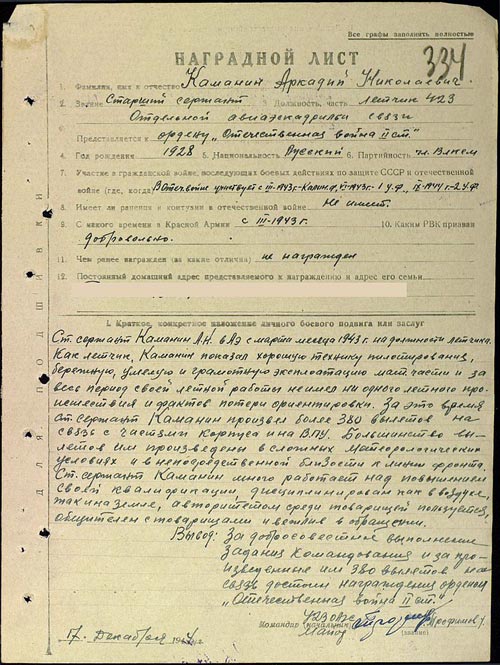 Все графы заполнять полностью
НАГРАДНОЙ ЛИСТ
334
1. Фамилия, имя и отчество Каманин Аркадий Николаевич
2. Звание Старший сержант 3. Должность, часть летчик 423
Отдельной авиаэскадрильи связи
Представляется к ордену „Отечественная война II ст."
4. Год рождения 1928 5. Национальность Русский 6. Партийность чл. Влксм
7. Участие в гражданской войне, последующих боевых действиях по защите СССР и отечественной
войне (где, когда) В отеч. войне участвует с III-1943г-
8. Имеет ли ранения и контузии в отечественной войне Не имеет.
9. С какого времени в Красной Армии с III-1943 г. 10. Каким РВК призван
добровольно.
11. Чем ранее награжден (за какие отличия) не награжден
12. Постоянный домашний адрес представляемого к награждению и адрес его семьи
I. Краткое, конкретное изложение личного боевого подвига или заслуг
Ст. сержант Каманин А.Н. в АЭ с марта месяца 1943 г. на должности летчика.
Как летчик, Каманин показал хорошую технику пилотирования,
бережную, умелую и грамотную эксплоатацию мат. части и за
весь период своей летной работы не имел ни одного летного про-
исшествия и фактов потери ориентировки. За это время
ст. сержант Каманин произвел более 380 вылетов на
связь с частями корпуса и на В.П.У. Большинство вы-
летов им произведены в сложных метеорологических
условиях и в непосредственной близости к линии фронта.
Ст. сержант Каманин много работает над повышением
своей квалификации, дисциплинирован как в воздухе,
так и на земле, авторитетом среди товарищей пользуется,
общителен с товарищами и вежлив в обращении.
Вывод: За добросовестное выполнение
задания командования и за про-
изведенные им 380 вылетов на
связь достоин награждения орденом
„Отечественная война II ст."
423 ОАЭС
Командир (начальник)
Майор Трофимов
(звание)
17. Декабря 194 г.
ДЛЯ ПОДШИВКИ